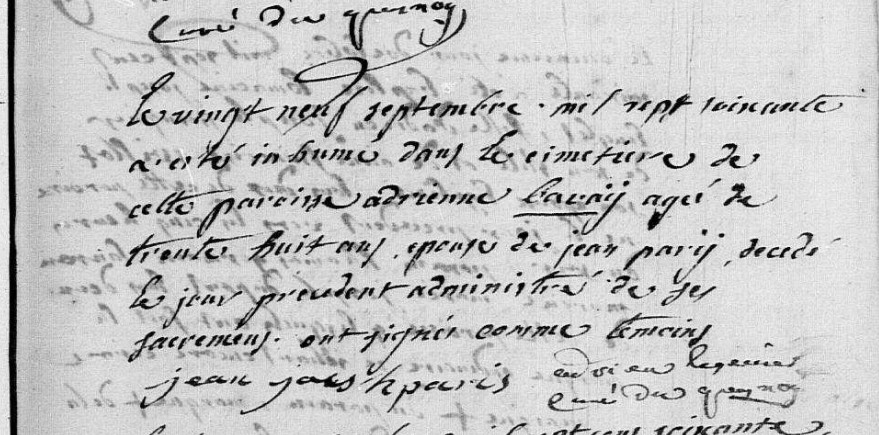 Curé du quesnoy
le vingt neuf septembre mil sept soixante
a eté inhumé dans le cimetiere de
cette paroisse adrienne bavaÿ ageé de
trente huit ans, epouse de jean parij decedé
le jour precedent administré de ses
sacremens. ont signés comme temoins
jean paris
curé du quesnoy
soixante